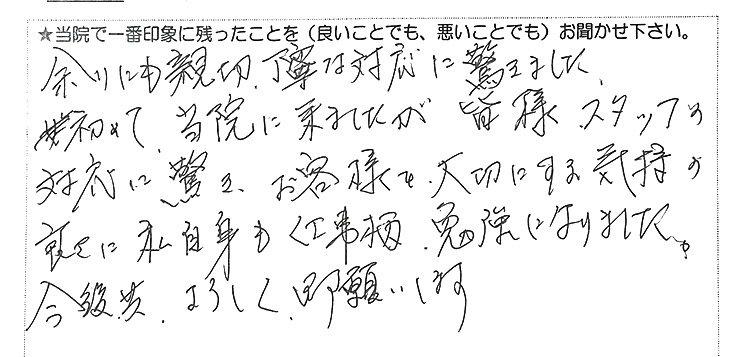 ★当院で一番印象に残ったことを（良いことでも、悪いことでも）お聞かせ下さい。
余りにも親切、丁寧な対応に驚きました
初めて、当院に来ましたが 皆様 スタッフの
対応に驚き、お客様を、大切にする気持の
に 私自身も 仕事柄、勉強になりました。
今後共、よろしく、御願いします